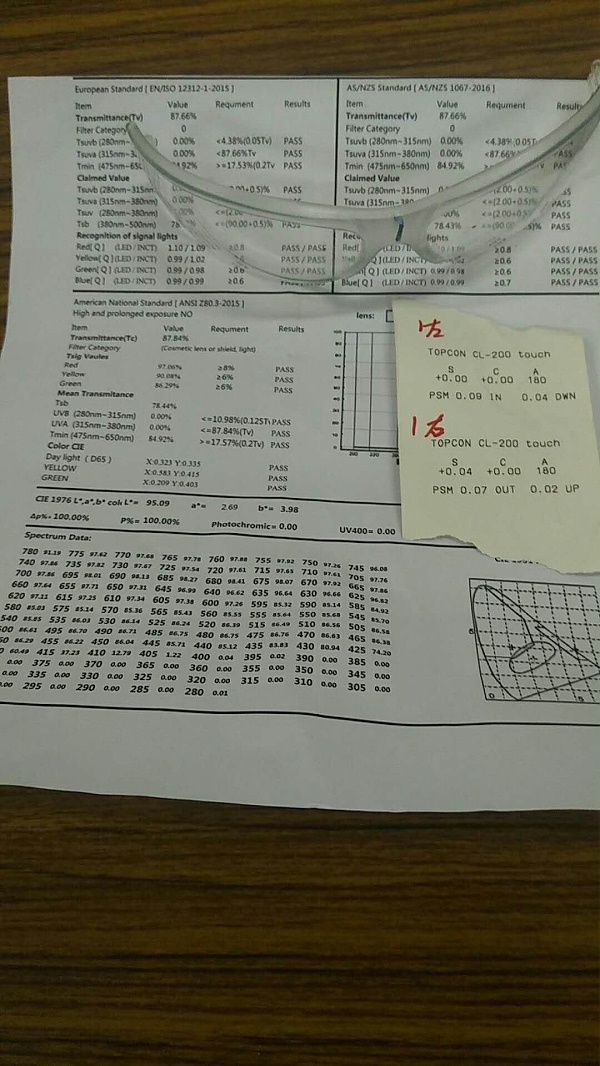 European Standard [ EN/ISO 12312-1-2015 ]
Item Value Requment Results
Transmittance(Tv) 87.66%
Filter Category 0
Tsuvb (280nm~ 0.00% <4.38%(0.05Tv) PASS
Tsuva (315nm~3 0.00% <87.66%Tv PASS
Tmin (475nm~65 84.92% >=17.53%(0.2Tv PASS
Claimed Value
Tsuvb (280nm~315nm PASS
Tsuva (315nm~380nm) 0.00% PASS
Tsuv (280nm~380nm) 0.00% PASS
Tsb (380nm~500nm) <=(90.00+0.5)% PASS
Recognition of signal lights
Red[ Q ] (LED / INCT) 1.10 / 1.09 ≥0.8 PASS / PASS
Yellow[ Q ] (LED / INCT) 0.99 / 1.02 PASS / PASS
Green[ Q ] (LED / INCT) 0.99 / 0.98 ≥0.6 PASS / PASS
Blue[ Q ] (LED / INCT) 0.99 / 0.98 ≥0.6
AS/NZS Standard [ AS/NZS 1067-2016 ]
Item Value Requment Results
Transmittance(Tv) 87.66%
Filter Category 0
Tsuvb (280nm~315nm) 0.00% <4.38%(0.05T PASS
Tsuva (315nm~380nm) 0.00% <87.66% PASS
Tmin (475nm~650nm) 84.92% PASS
Claimed Value
Tsuvb (280nm~315nm) (2.00+0.5)%
Tsuva (315nm~ <=(2.00+0.5)%
<=(2.00+0.5)% PASS
78.43% PASS
lights
Red[ (LED / INCT) ≥0.8 PASS / PASS
≥0.6 PASS / PASS
[ Q ] (LED / INCT) 0.99 / 0.98 ≥0.6 PASS / PASS
Blue[ Q ] (LED / INCT) 0.99 / 0.98 ≥0.7 PASS / PASS
American National Standard [ ANSI Z80.3-2015 ]
High and prolonged exposure NO
Item Value Requment Results
Transmittance(Tc) 87.84%
Filter Category (Cosmetic lens or shield, light)
Tsig Vaules
Red 97.06% ≥8% PASS
Yellow 90.08% ≥6% PASS
Green 86.29% ≥6% PASS
Mean Transmitance
Tsb 78.44%
UVB (280nm~315nm) 0.00% <=10.98%(0.125T\ PASS
UVA (315nm~380nm) 0.00% <=87.84%(Tv) PASS
Tmin (475nm~650nm) 84.92% >=17.57%(0.2Tv) PASS
Color CIE
Day light ( D65 ) X:0.323 Y:0.335 PASS
YELLOW X:0.583 Y:0.415 PASS
GREEN X:0.209 Y:0.403 PASS
lens:
TOPCON CL-200 touch
S C A
+0.00 +0.00 180
PSM 0.09 IN 0.04 DWN
TOPCON CL-200 touch
S C A
+0.04 +0.00 180
PSM 0.07 OUT 0.02 UP
CIE 1976 L*,a*,b* col L*= 95.09 a*= 2.69 b*= 3.98
Δp%= 100.00% P%= 100.00% Photochromic= 0.00 UV400= 0.00
Spectrum Data:
780 91.19 775 97.62 770 97.68 765 97.78 760 97.88 755 97.92 750 97.26 745 96.08
740 97.86 735 97.82 730 97.67 725 97.54 720 97.61 715 97.65 710 97.61 705 97.76
700 97.86 695 98.01 690 98.13 685 98.27 680 98.41 675 98.07 670 97.92 665 97.86
660 97.64 655 97.71 650 97.31 645 96.99 640 96.62 635 96.64 630 96.66 625 96.82
620 97.11 615 97.25 610 97.34 605 97.38 600 97.26 595 85.32 590 85.14 585 84.92
580 85.03 575 85.14 570 85.36 565 85.43 560 85.55 555 85.64 550 85.68 545 85.70
540 85.85 535 86.03 530 86.14 525 86.24 520 86.39 515 86.49 510 86.56 505 86.58
500 86.61 495 86.70 490 86.71 485 86.75 480 86.75 475 86.76 470 86.63 465 86.38
86.29 455 86.22 450 86.04 445 85.71 440 85.12 435 83.83 430 80.94 425 74.20
60.49 415 37.23 410 12.79 405 1.22 400 0.04 395 0.02 390 0.00 385 0.00
0.00 375 0.00 370 0.00 365 0.00 360 0.00 355 0.00 350 0.00 345 0.00
0.00 335 0.00 330 0.00 325 0.00 320 0.00 315 0.00 310 0.00 305 0.00
.00 295 0.00 290 0.00 285 0.00 280 0.01